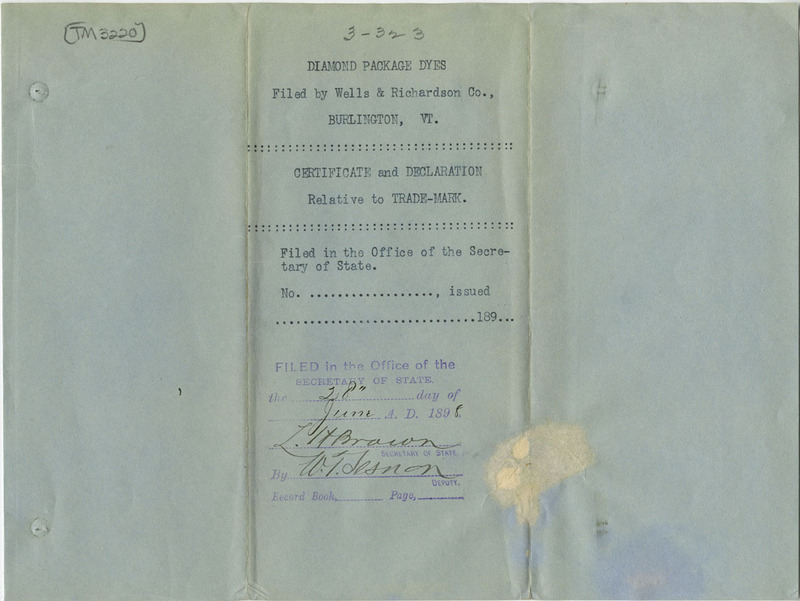 [TM3220]
3-323
DIAMOND PACKAGE DYES
Filed by Wells & Richardson Co.,
BURLINGTON, VT.
::::::::::::::::::::::::::::::::::::::
CERTIFICATE and DECLARATION
Relative to TRADE-MARK.
::::::::::::::::::::::::::::::::::::::
Filed in the Office of the Secre-
tary of State.
No. .................., issued
.............................189...
FILED in the Office of the
SECRETARY OF STATE.
the 28" day of
June A. D. 1898
L. H Brown
SECRETARY OF STATE
By W. T. Sesnon
DEPUTY.
Record Book, Page,